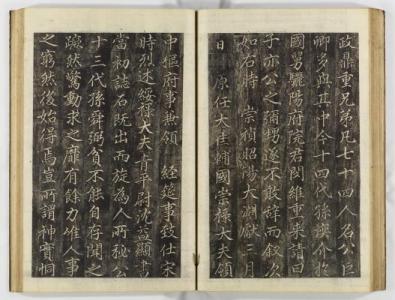 政鼎重兄弟凡七十四人名公巨
卿多與其中今十四代孫介於
國舅驪陽府院君閔維重來請曰
子亦公之彌甥遂不敢辭而叙次
如右時 崇禎昭陽大淵獻三月
日 原任大匡輔國崇祿大夫領
中樞府事兼領 經筵事致仕宋
時烈述綏祿大夫青平尉沈益顯書
當初誌石既出而旋為人所秘公
十三代孫舜弼貧不能自存聞之
蹶然驚動求之靡有餘力唯人事
之窮然後始得焉豈所謂神實恫